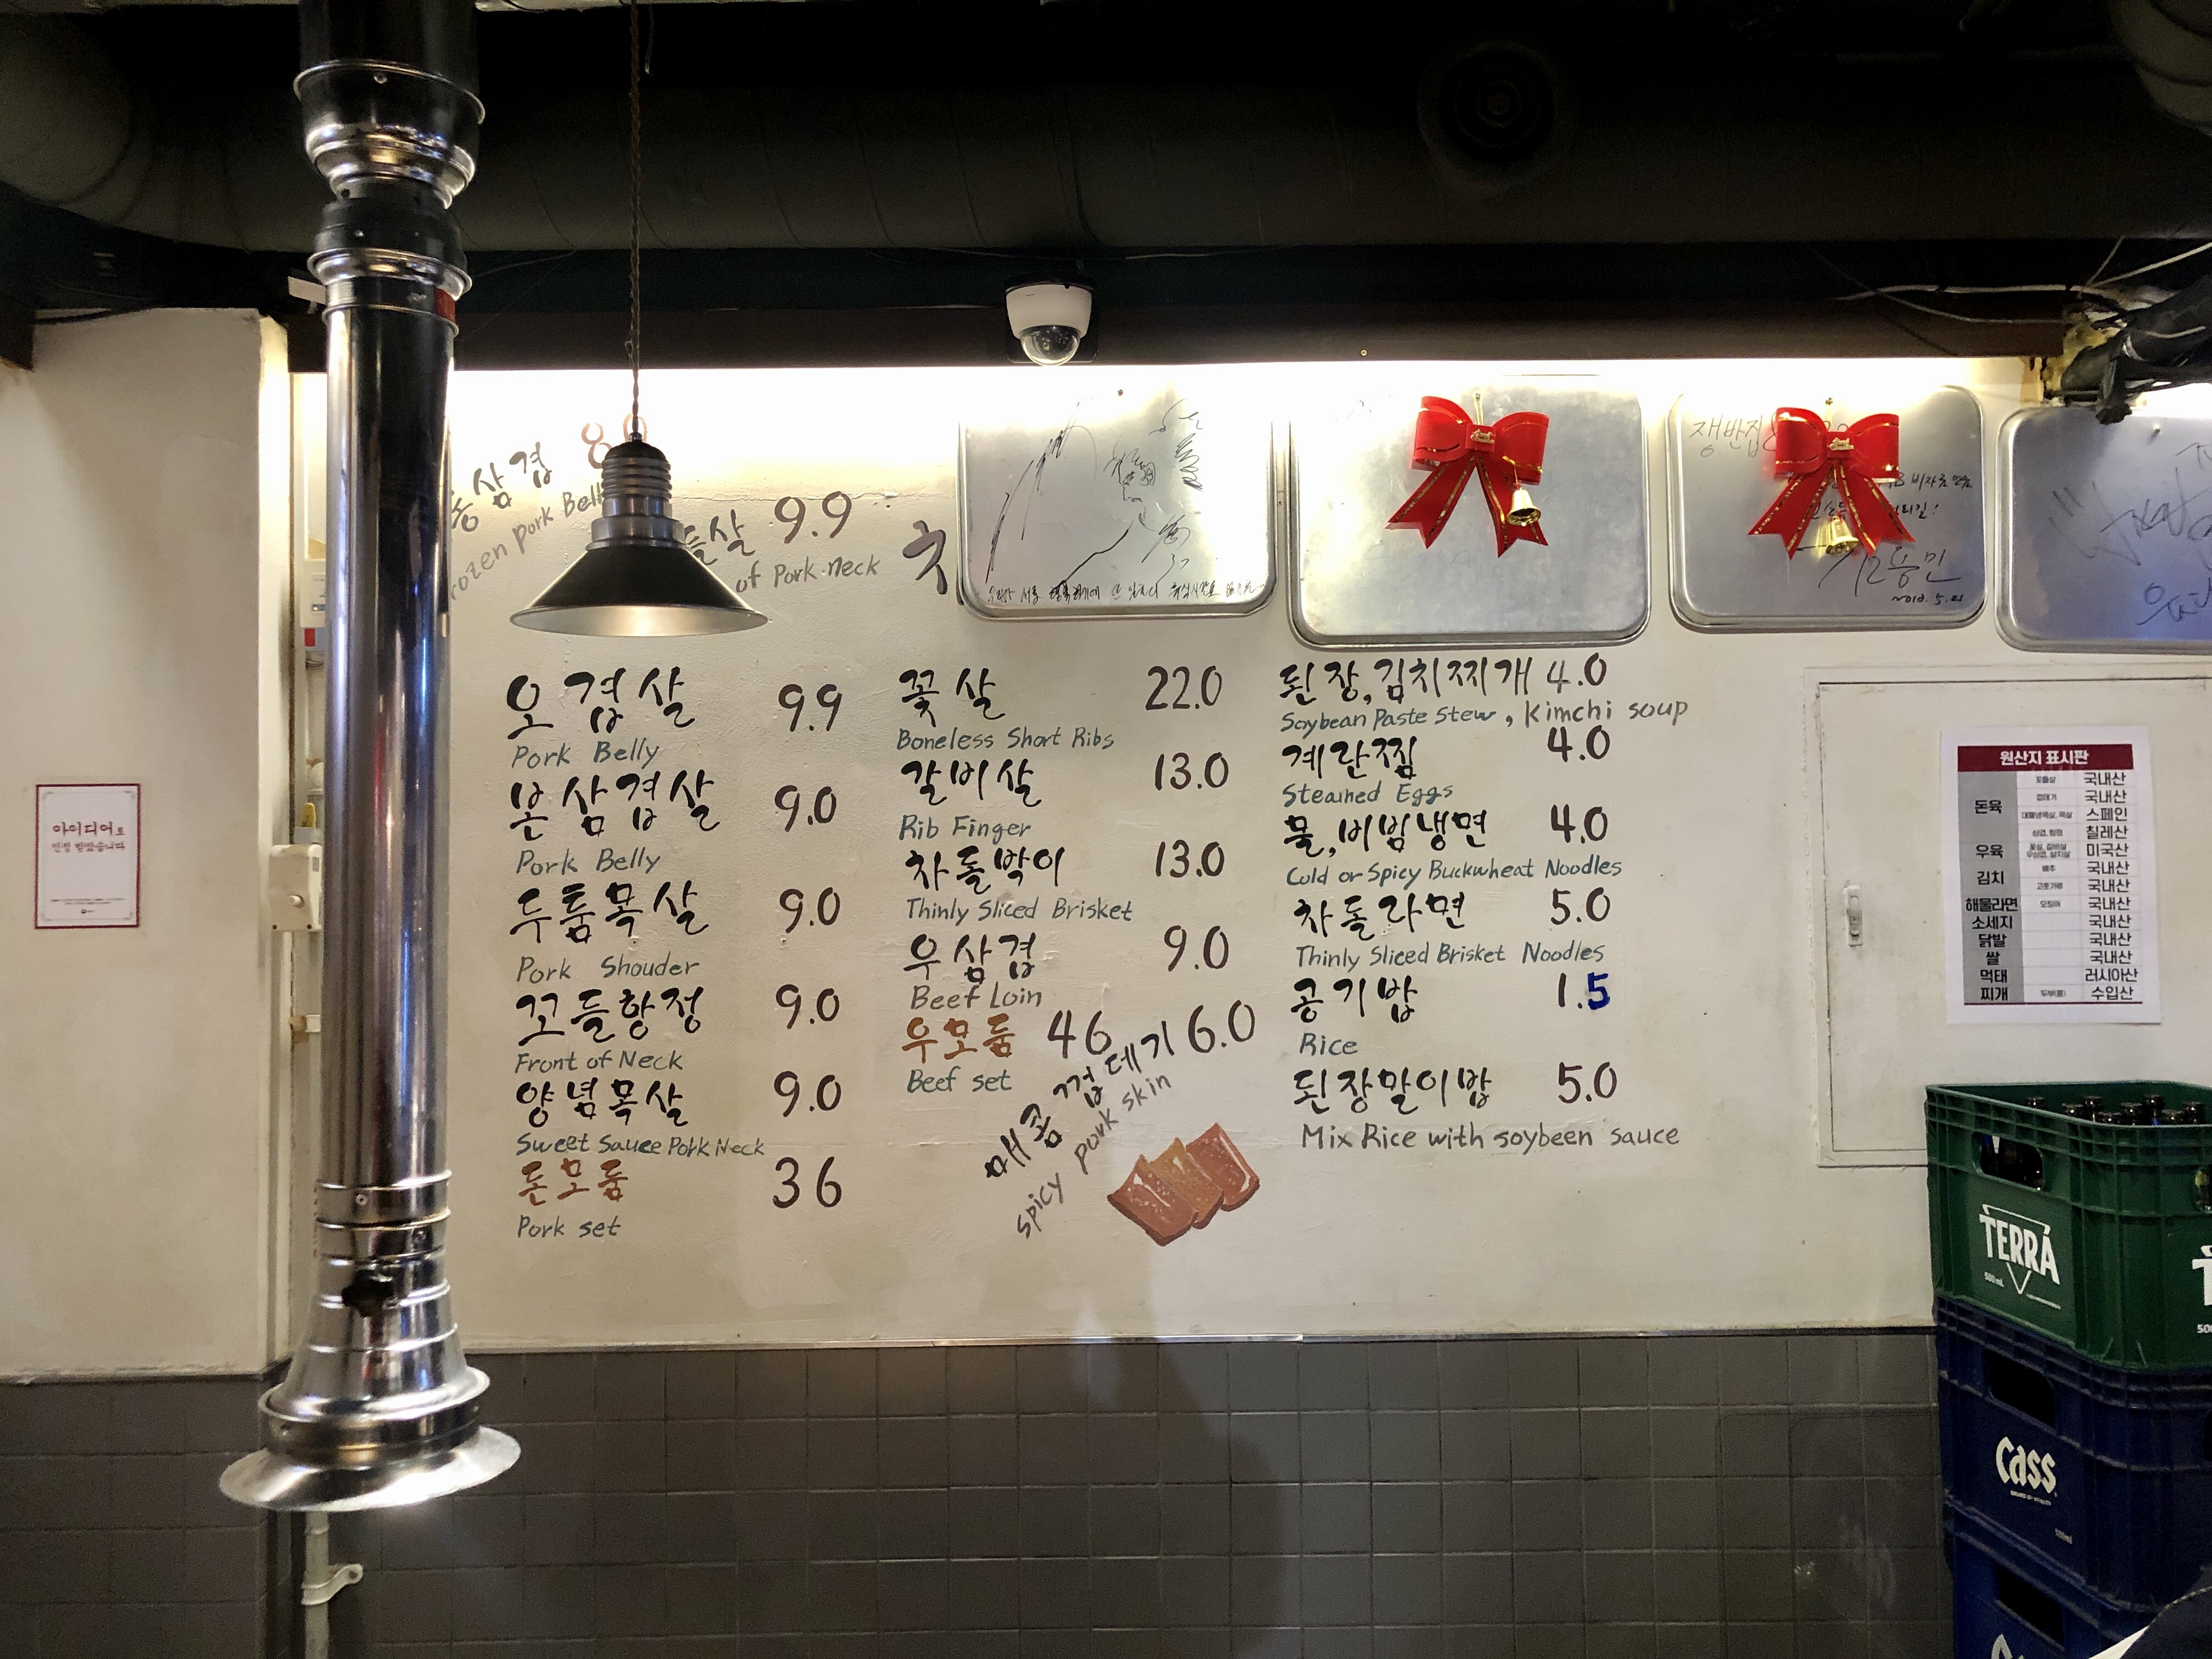 동삼겹
Frozen Pork Belly
들살 9.9
of Pork-neck
오겹살 9.9
Pork Belly
본삼겹살 9.0
Pork Belly
두툼목살 9.0
Pork Shouder
꼬들항정 9.0
Front of Neck
양념목살 9.0
Sweet Sauce Pork Neck
돈모듬 36
Pork set
꽃살 22.0
Boneless Short Ribs
갈비살 13.0
Rib Finger
차돌박이 13.0
Thinly Sliced Brisket
우삼겹 9.0
Beef Loin
우모듬 46
Beef set
매콤껍데기 6.0
Spicy pork skin
된장,김치찌개 4.0
Soybean Paste Stew, kimchi soup
계란찜 4.0
Steamed Eggs
물,비빔냉면 4.0
Cold or Spicy Buckwheat Noodles
차돌라면 5.0
Thinly Sliced Brisket Noodles
공기밥 1.5
Rice
된장말이밥 5.0
Mix Rice with soybeen sauce
쟁반집
2010.5.21
아이디어로
인정 받았습니다
원산지 표시판
국내산
국내산
돈육 스페인
칠레산
우육 미국산
김치 배추 국내산
고춧가루 국내산
해물라면 오징어 국내산
소세지 국내산
닭발 국내산
쌀 국내산
먹태 러시아산
찌개 두부(콩) 수입산
TERRA
500 mL
Cass
500ml